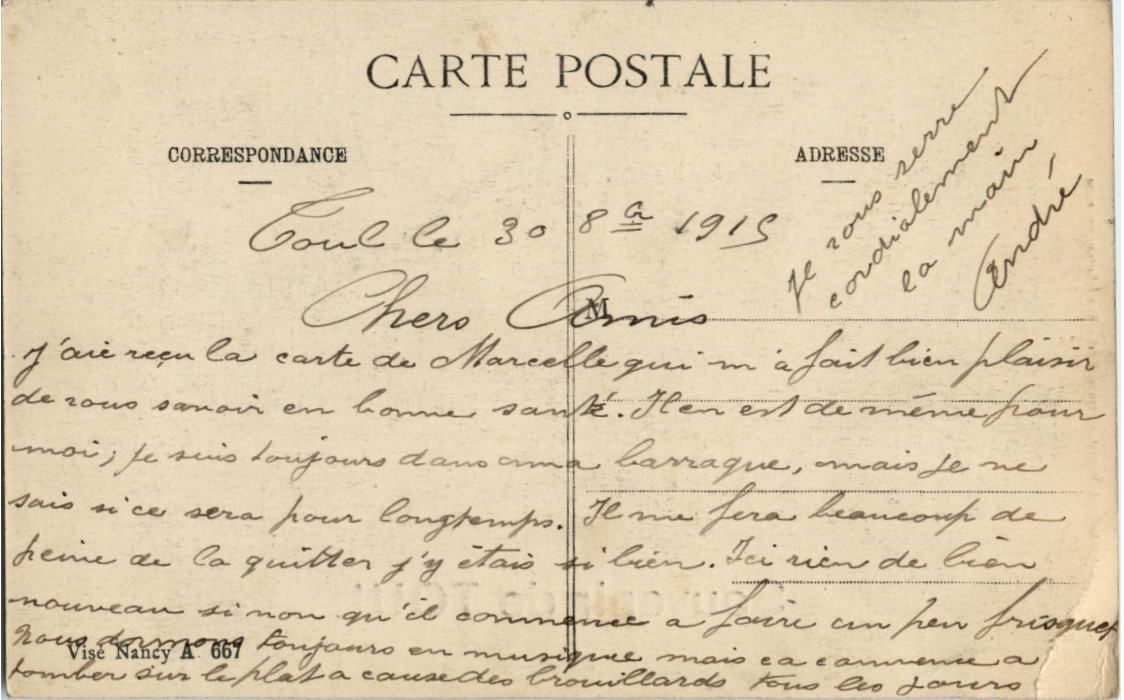 CARTE POSTALE
CORRESPONDANCE
ADRESSE
Toul le 30 8bre 1915
Chers Amis
M
J'aie reçu la carte de Marcelle qui m'a fait bien plaisir
de vous savoir en bonne santé. Il en est de même pour
moi; je suis toujours dans ma barraque, mais je ne
sais si ce sera pour longtemps. Il me fera beaucoup de
peine de la quitter j'y étais si bien. Ici rien de bien
nouveau si non qu'il commence a faire un peu frisquet
Nous dormons toujours en musique mais ca commence a
tomber sur le plat a cause des brouillards tous les jours
Visé Nancy A 667
Je vous serre
cordialement
la main
André